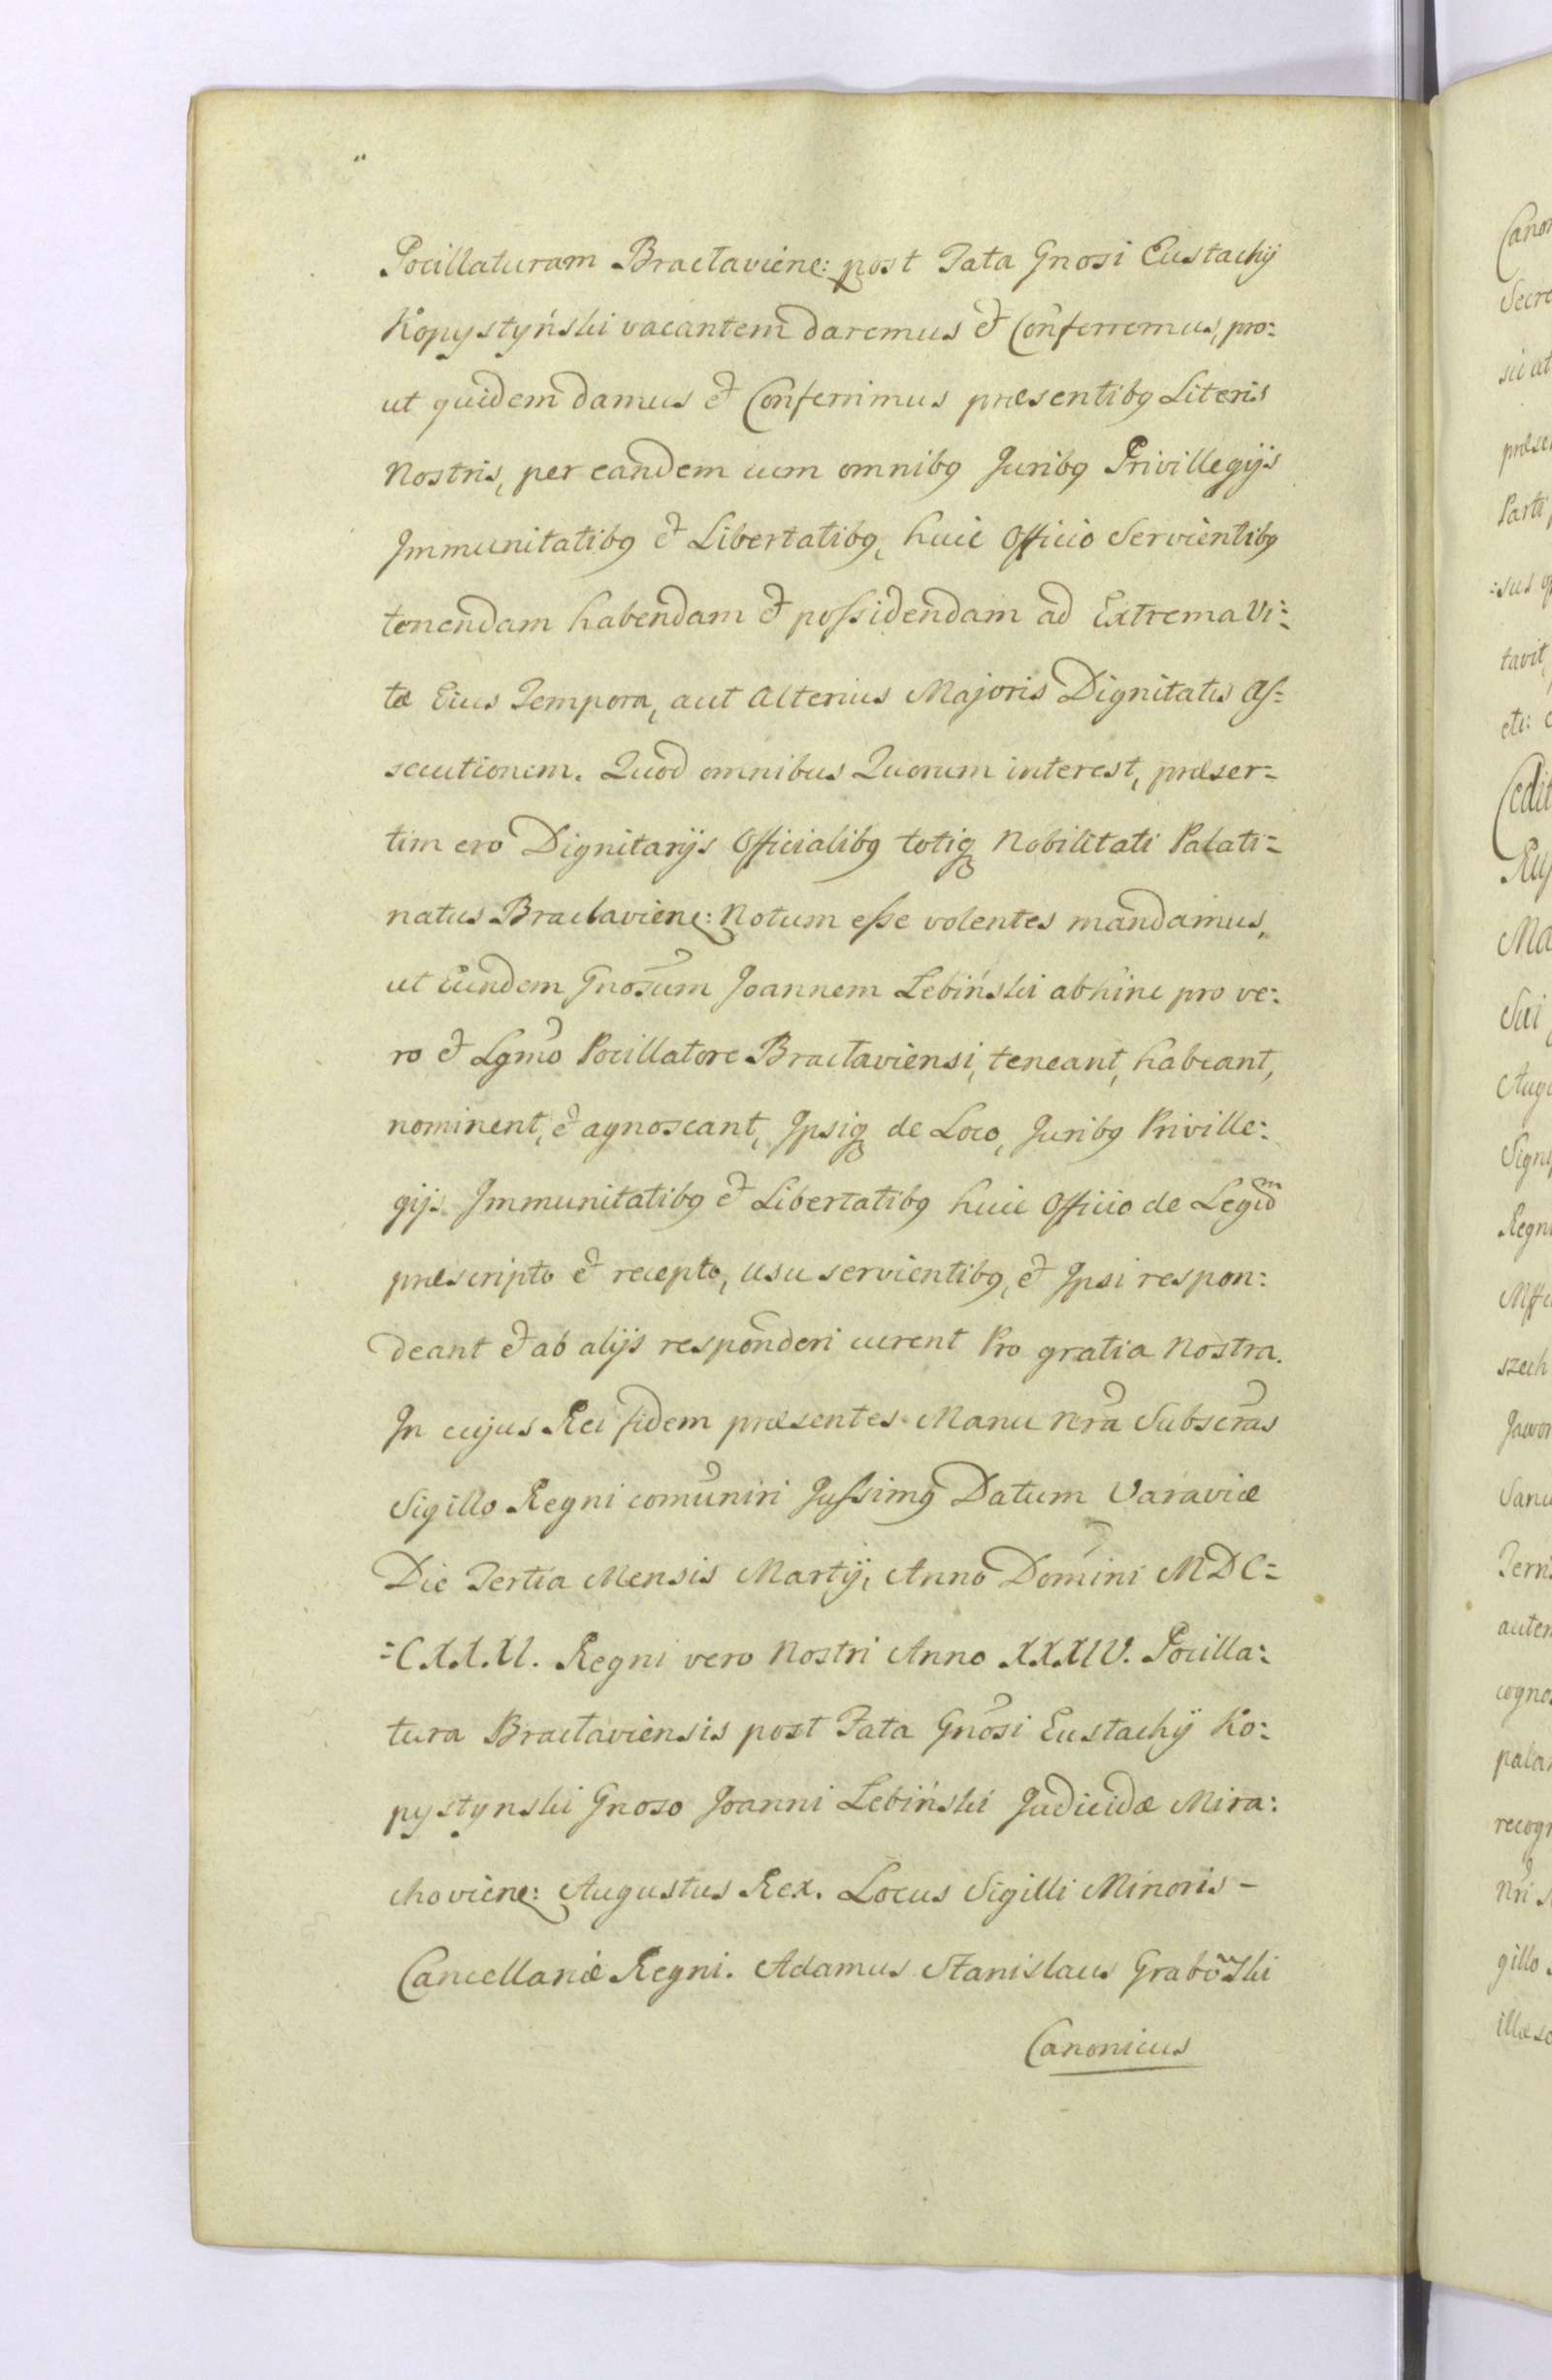 Pocillaturam Braclaviene: post Fata Gnosi Eustachÿ
Kopystyński vacantem daremus et Conferremus, pro:
ut quidem damus et Conferimus præsentibꝯ Literis
Nostris, per eandem cum omnibꝯ Juribꝯ Privillegijs
Immunitatibꝯ et Libertatibꝯ, huic Officio Servientibꝯ
tenendam habendam et possidendam ad Extrema Vi:
tæ Eius Tempora, aut Alterius Majoris Dignitatis As=
secutionem. Quod omnibus Quorum interest, præser=
tim ero Dignitarijs Officialibꝯ totiqꝫ Nobilitati Palati=
natus Braclaviene: Notum esse volentes mandamus,
ut Eundem Gnosum Joannem Lebiński abhinc pro ve:
ro et Lgmo Pocillatore Braclaviensi, teneant, habeant,
nominent, et agnoscant, Ipsiqꝫ de Loco, Juribꝯ Priville:
gijs Immunitatibꝯ et Libertatibꝯ huic Officio de Legum
præscripto et recepto, usu servientibꝯ, et Ipsi respon:
deant et ab alijs responderi curent Pro gratia Nostra.
In cujus Rei fidem præsentes Manu Nra Subscras
Sigillo Regni comuniri Jussimꝯ Datum Varaviæ
Die Tertia Mensis Martÿ, Anno Domini MDC=
=CXXXI. Regni vero Nostri Anno XXXIV. Pocilla:
tura Braclaviensis post Fata Gnosi Eustachÿ Ko:
pystynski Gnoso Joanni Lebiński Judicidæ Mira:
choviene: Augustus Rex. Locus Sigilli Minoris -
Cancellariæ Regni. Adamus Stanislaus Grabowski
Canonicus